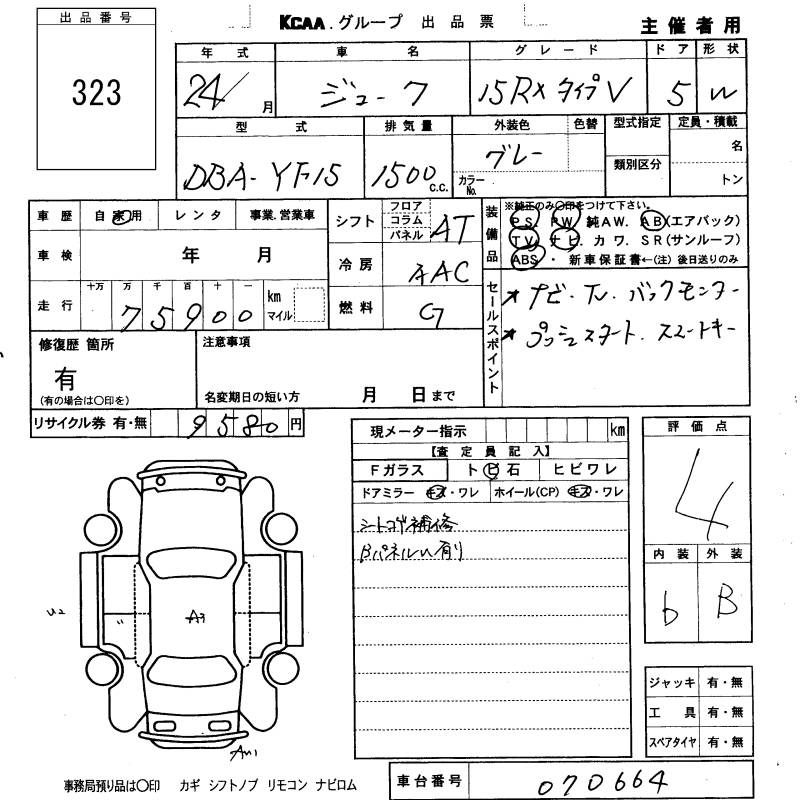 出品番号
323
KCAA グループ 出品票
主催者用
年式 車名 グレード ドア 形状
24/ 月 ジューク 15RX タイプV 5 W
型式 排気量 外装色 色替 型式指定 定員・積載
DBA-YF15 1500 C.C. グレー カラーNo. 類別区分 名
トン
車歴 自家用 レンタ 事業.営業車
車検 年 月
走行 十万 万 千 百 十 一 km マイル
75900
シフト フロア コラム パネル AT
冷房 AAC
燃料 G
装備品 ※純正のみ〇印をつけて下さい。
PS. PW. 純AW. AB(エアバック)
TV. ナビ. カワ. SR(サンルーフ)
ABS・ 新車保証書←(注)後日送りのみ
セールスポイント
★ナビ・TV. バックモニター
★プッシュスタート. スマートキー
修復歴 箇所
有
(有の場合は〇印を)
注意事項
名変期日の短い方 月 日まで
リサイクル券 有・無 9580 円
現メーター指示 km
【査定員記入】
Fガラス トビ石 ヒビワレ
ドアミラー キズ・ワレ ホイール(CP) キズ・ワレ
シートコゲ補修
Bパネル 有り
評価点
4
内装 外装
b B
ジャッキ 有・無
工具 有・無
スペアタイヤ 有・無
U2
A3
事務局預り品は〇印 カギ シフトノブ リモコン ナビロム
車台番号 070664